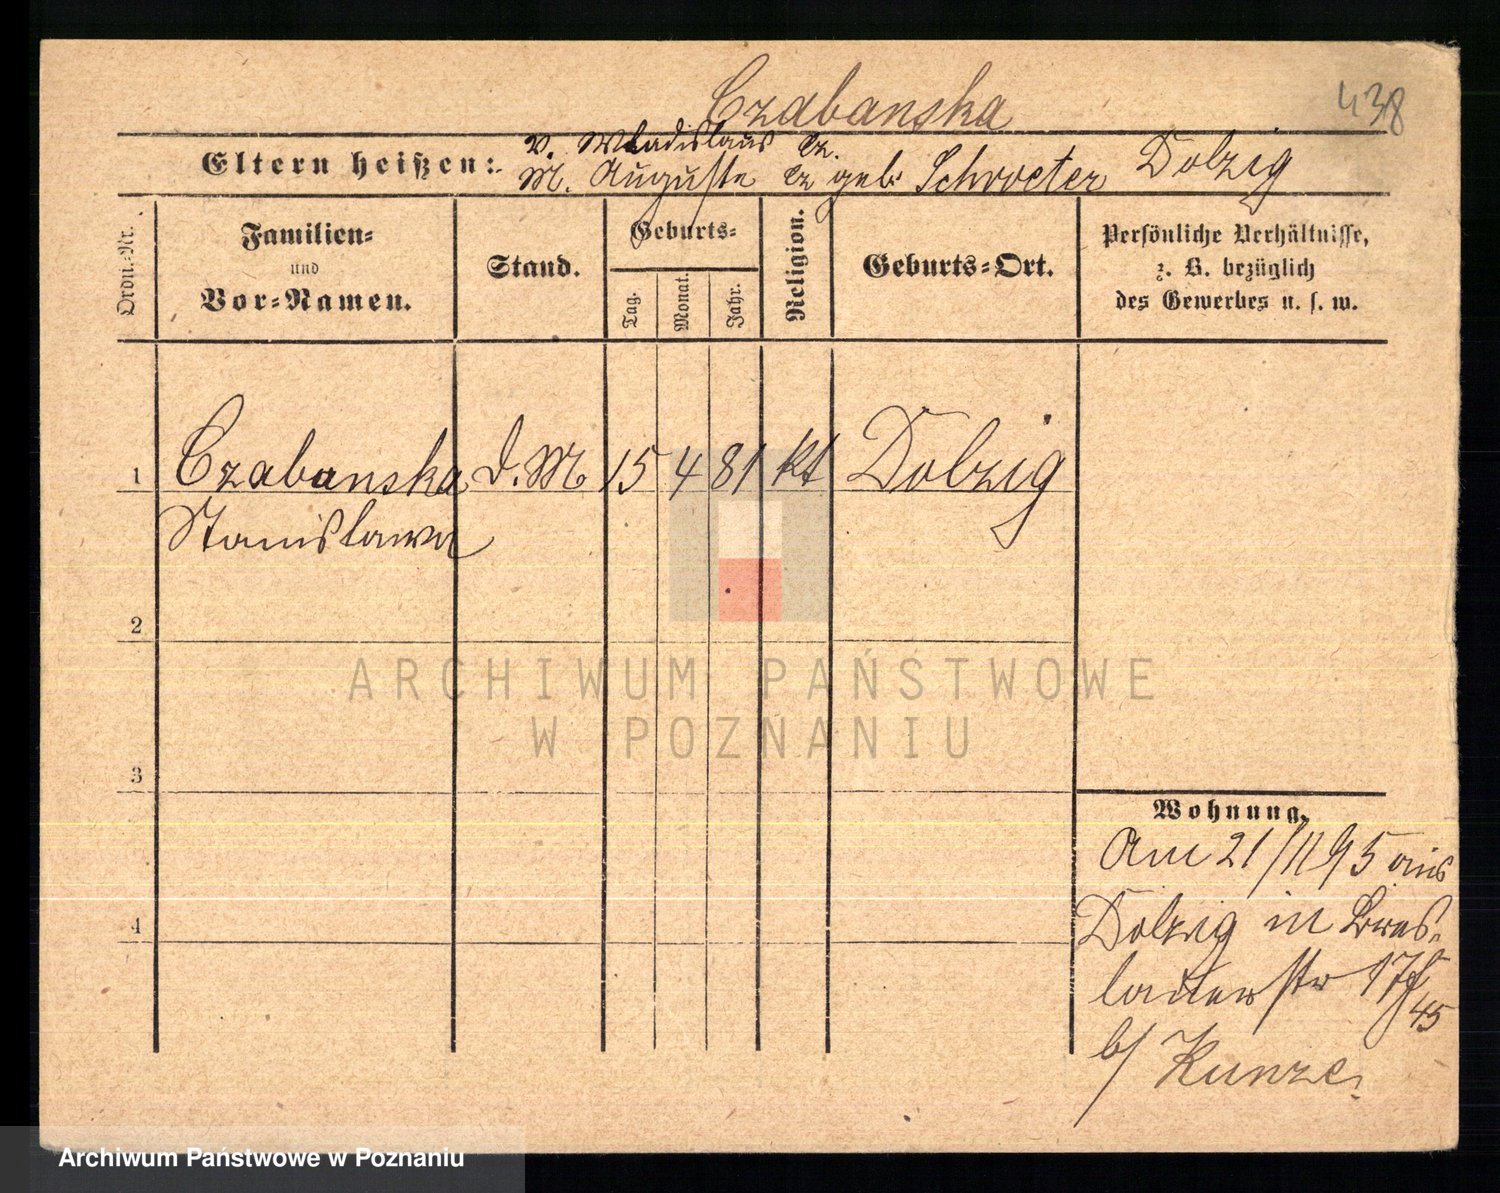 Czabanska
438
Eltern heißen:
V. Wladislaus Cz.
M. Auguste Cz geb. Schroeter Dolzig
Ordn.-Nr.
Familien-
und
Vor-Namen.
Stand.
Geburts-
Tag.
Monat.
Jahr.
Religion.
Geburts-Ort.
Persönliche Verhältnisse,
z. B. bezüglich
des Gewerbes u. s. w.
1 Czabanska d. M 15 4 81 kt Dolzig
Stanislawa
2
3
4
Wohnung.
Am 21/11 95 aus
Dolzig in Bres-
lauer str 17
45
b/ Kunze
ARCHIWUM PAŃSTWOWE
W POZNANIU
Archiwum Państwowe w Poznaniu